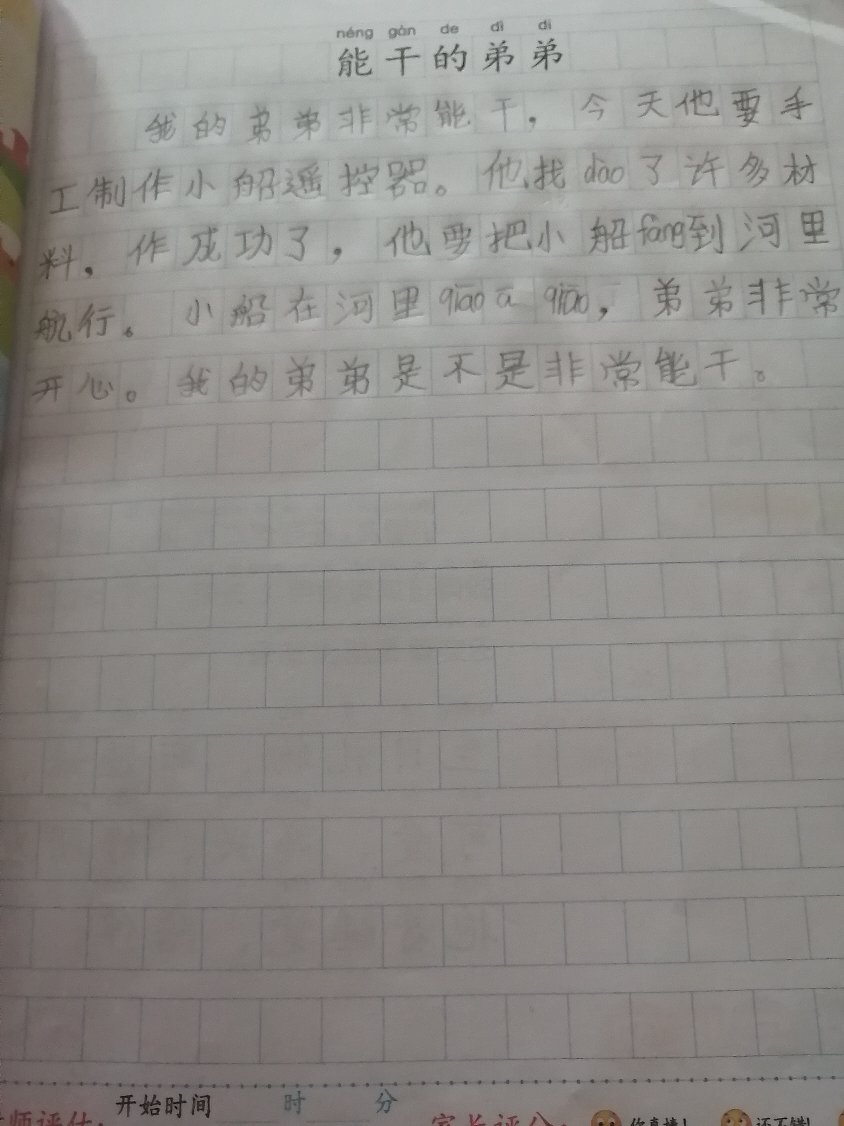 néng gàn de dì di
能干的弟弟
我的弟弟非常能干，今天他要手
工制作小船遥控器。他找dào了许多材
料，作成功了，他要把小船fàng到河里
航行。小船在河里qiāo a qiāo，弟弟非常
开心。我的弟弟是不是非常能干。
师评估：
开始时间 时 分
家长评分：
你真棒！
还不错！